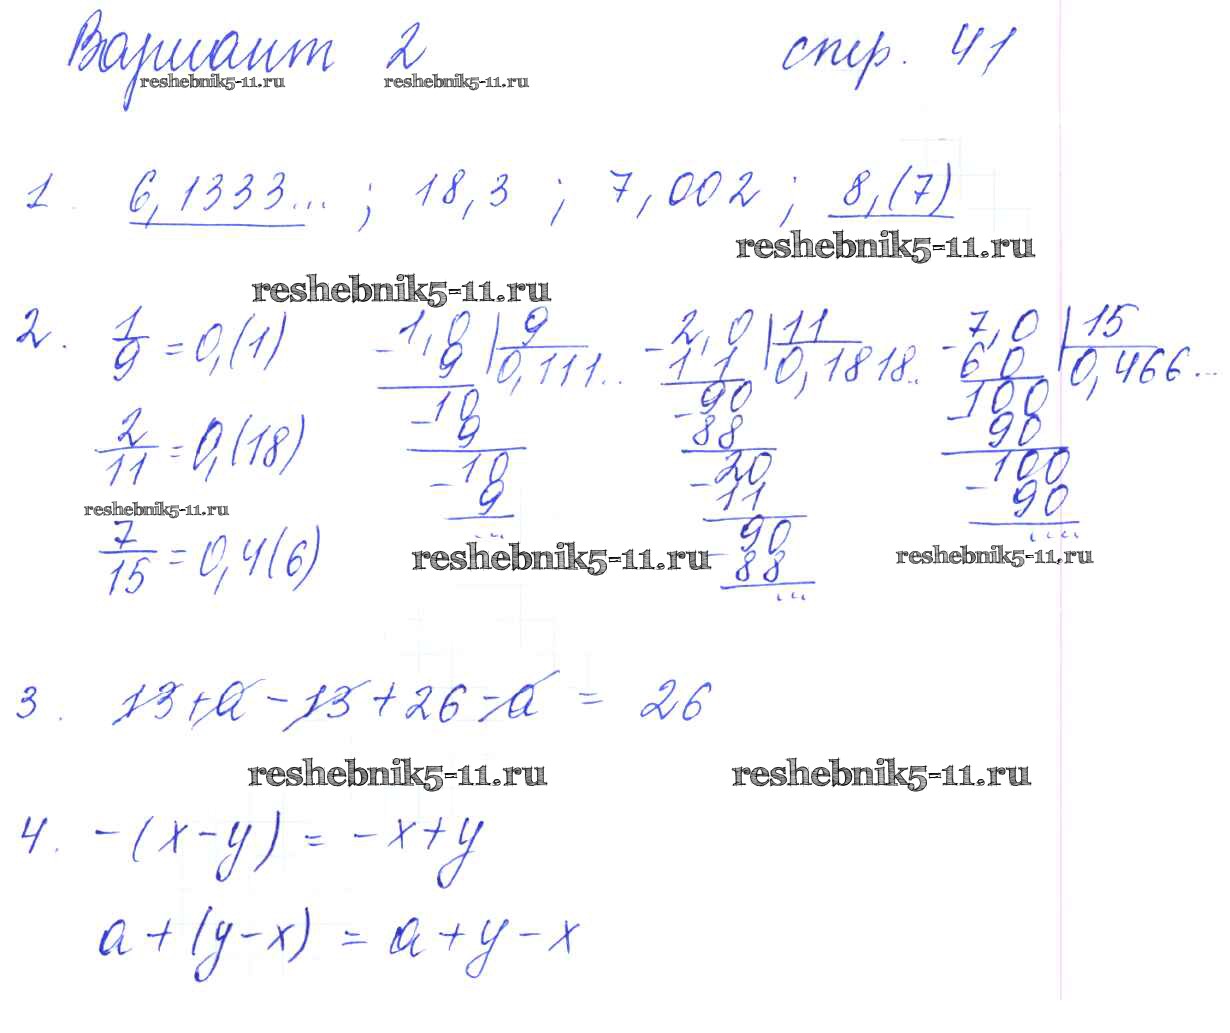 Вариант 2 стр. 41
reshebnik5-11.ru reshebnik5-11.ru
1. 6,1333...; 18,3; 7,002; 8,(7)
reshebnik5-11.ru
reshebnik5-11.ru
2. 1/9 = 0,(1) 1,0 | 9 2,0 | 11 7,0 | 15
- 9 0,111... - 1 1 0,1818... - 6 0 0,466...
10 90 100
- 9 - 88 - 90
2/11 = 0,(18) 10 20 100
- 9 - 11 - 90
... 90 ....
- 88
...
reshebnik5-11.ru
7/15 = 0,4(6)
reshebnik5-11.ru reshebnik5-11.ru
3. 13 + a - 13 + 26 - a = 26
reshebnik5-11.ru reshebnik5-11.ru
4. -(x - y) = -x + y
a + (y - x) = a + y - x